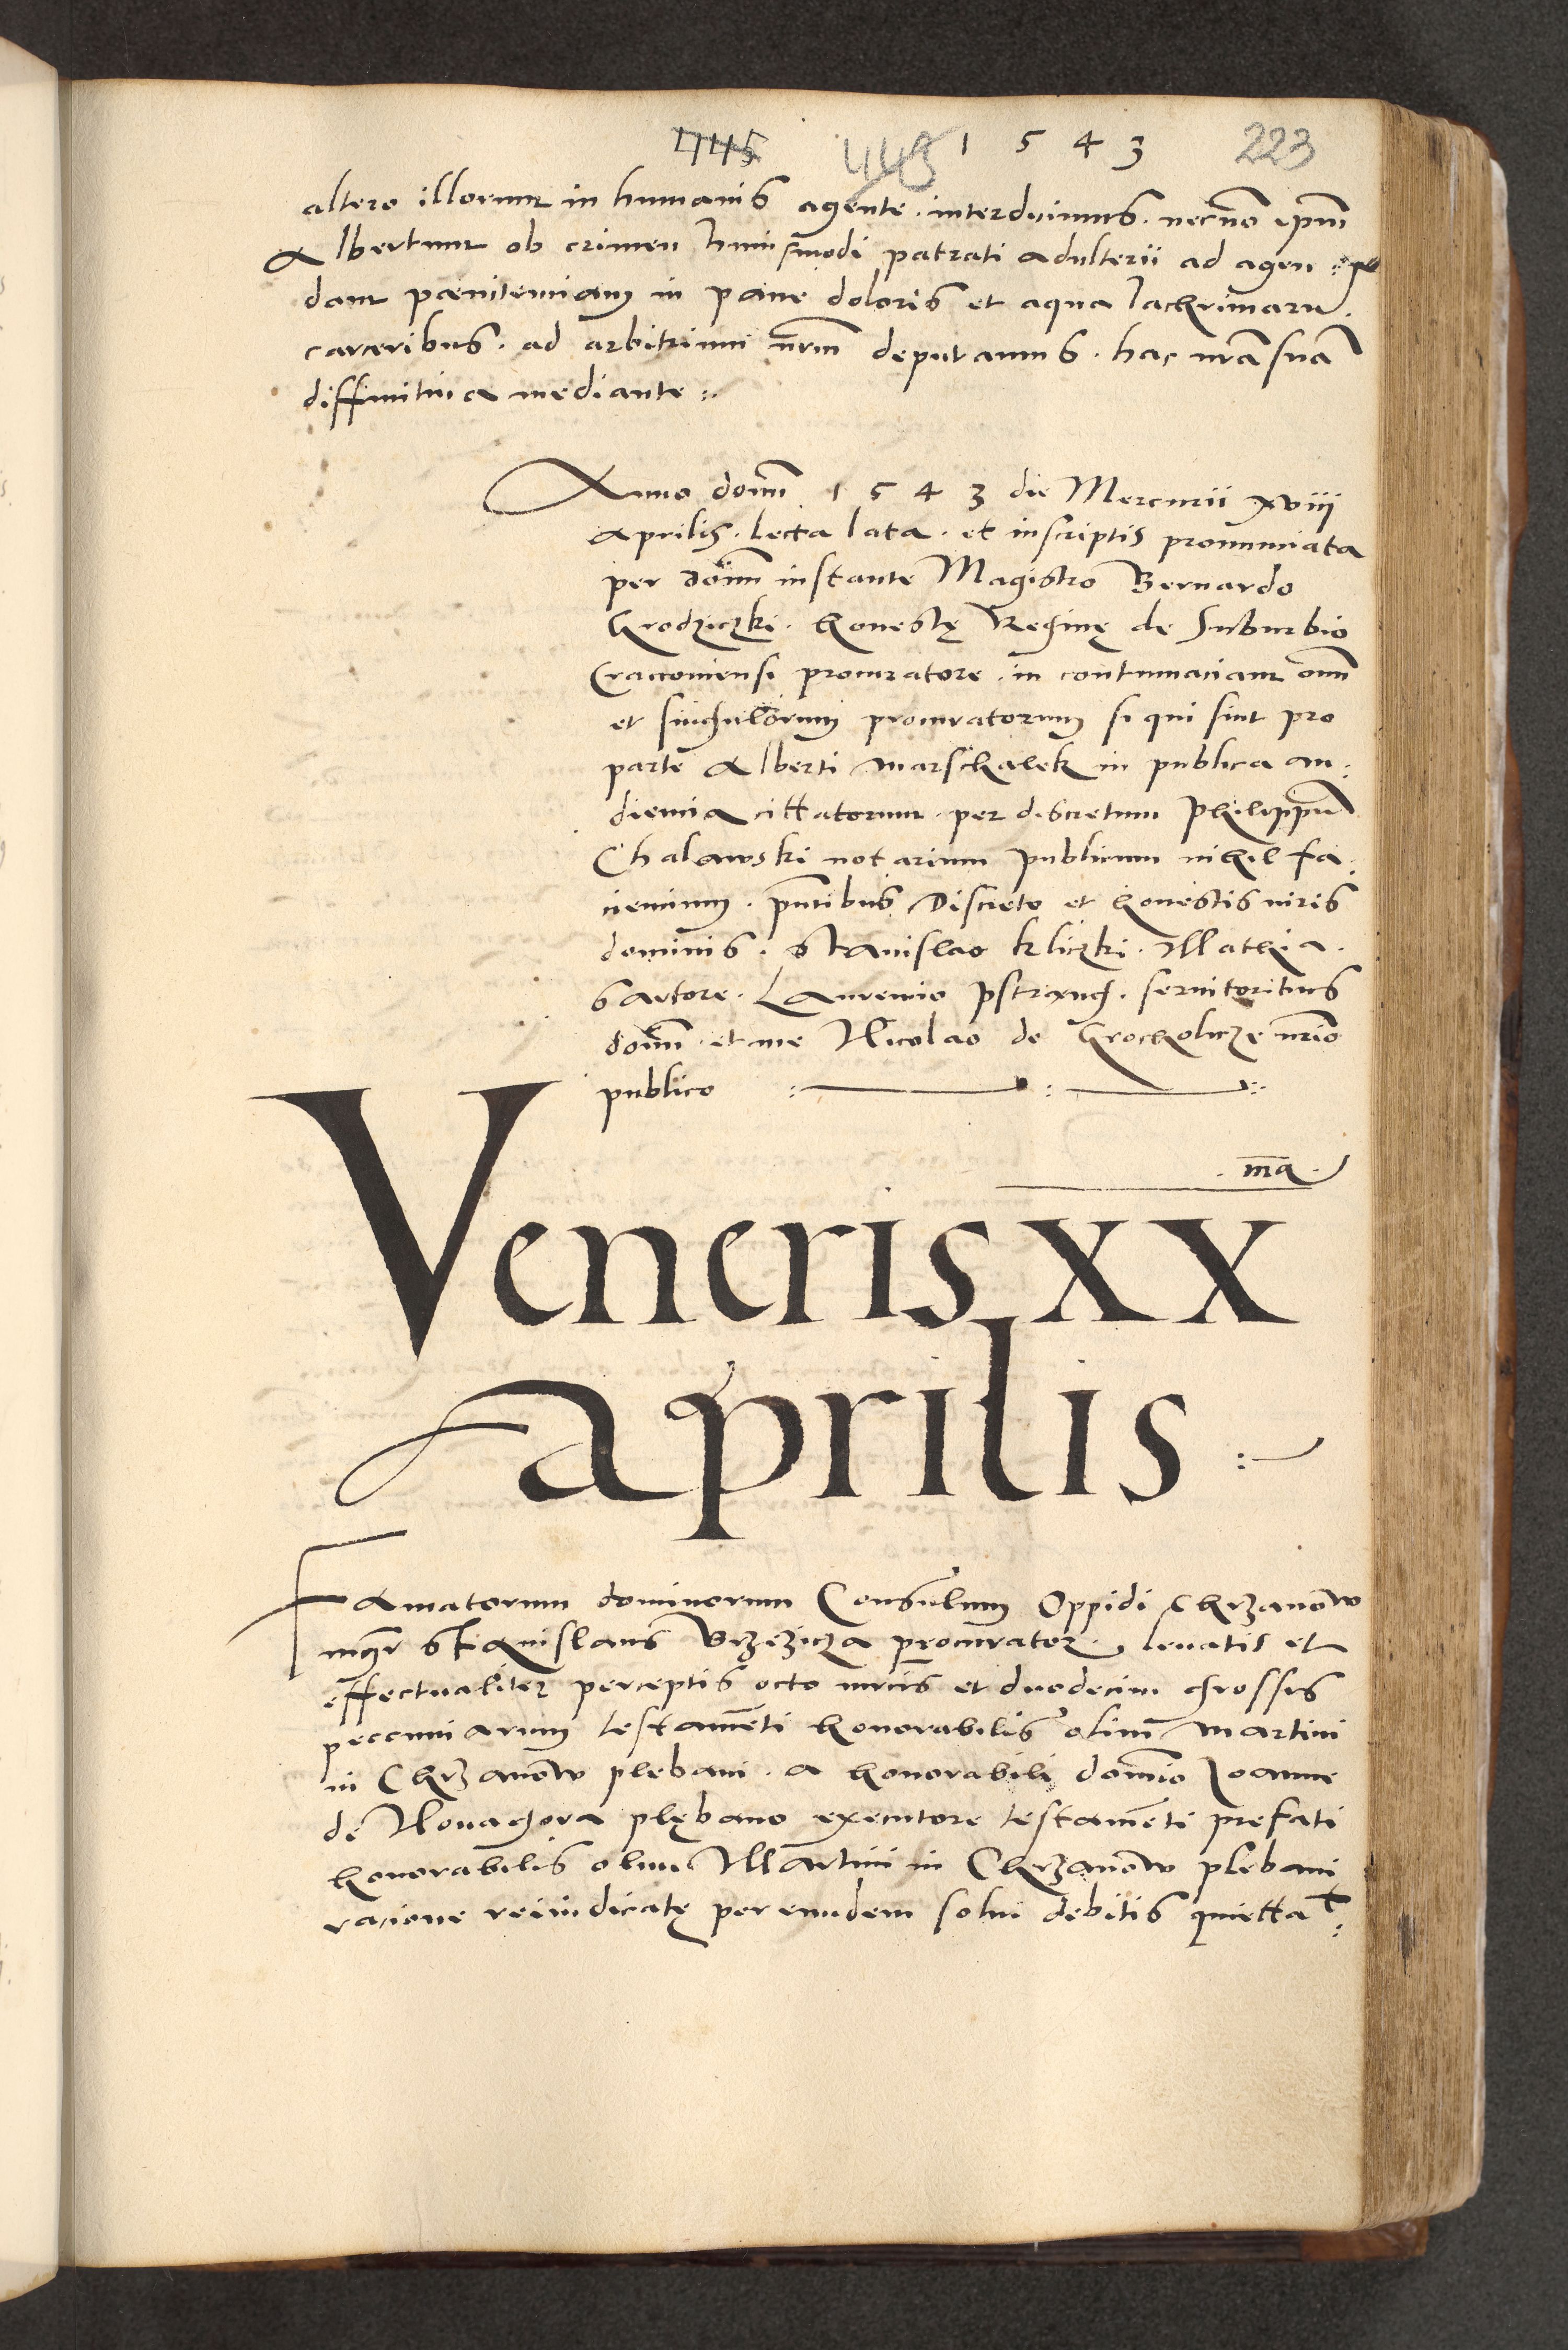 445 445 1 5 4 3 223
altero illorum in humanis agente . interdicimus . necnō ip̄m
Albertum ob crimen huiusmodi patrati adulterii ad agen
dam pœnitenciam in pane doloris et aqua lachrimarū .
carceribus . ad arbitrium nr̄m deputamus . hac nr̄a sn̄ia
diffinitiua mediante :.
Anno domī 1 5 4 3 die Mercurii xviii
Aprilis . Lecta lata . et inscriptis pronunciata
per dōim instante Magistro Bernardo
Grodziczki . honestę Reginę de Suburbio
Cracouiensi procuratore . in contumaciam om̄
et singulorum procuratorum si qui sint pro
parte Alberti Marschalek in publica au
diencia cittatorum . per discretum Philippū
Chalawski notarium publicum nihil fa
ciencium . pn̄tibus Discreto et honestis viris
dominis . Stanislao Kliczki . Mathia .
Sartore . Laurencio Pstrąng . seruitoribus
domī . et me Nicolao de Grocholicze nr̄io
publico
.ma.
Veneris XX
aprilis
Famatorum dominorum Consulum Oppidi Chrzanow
mgr̄ Stanislaus Brzezicza procurator . leuatis et
effectualiter perceptis octo mrcis et duodecim grossis
peccuniarum testamēti honorabilis olim Martini
in Chrzanow plebani . a honorabili domīo Joanne
de Nouagora plębano executore testamēti prefati
honorabilis olim Martini in Chrzanow plebani
racione reiudicatę per eundem solui debitis quietta t